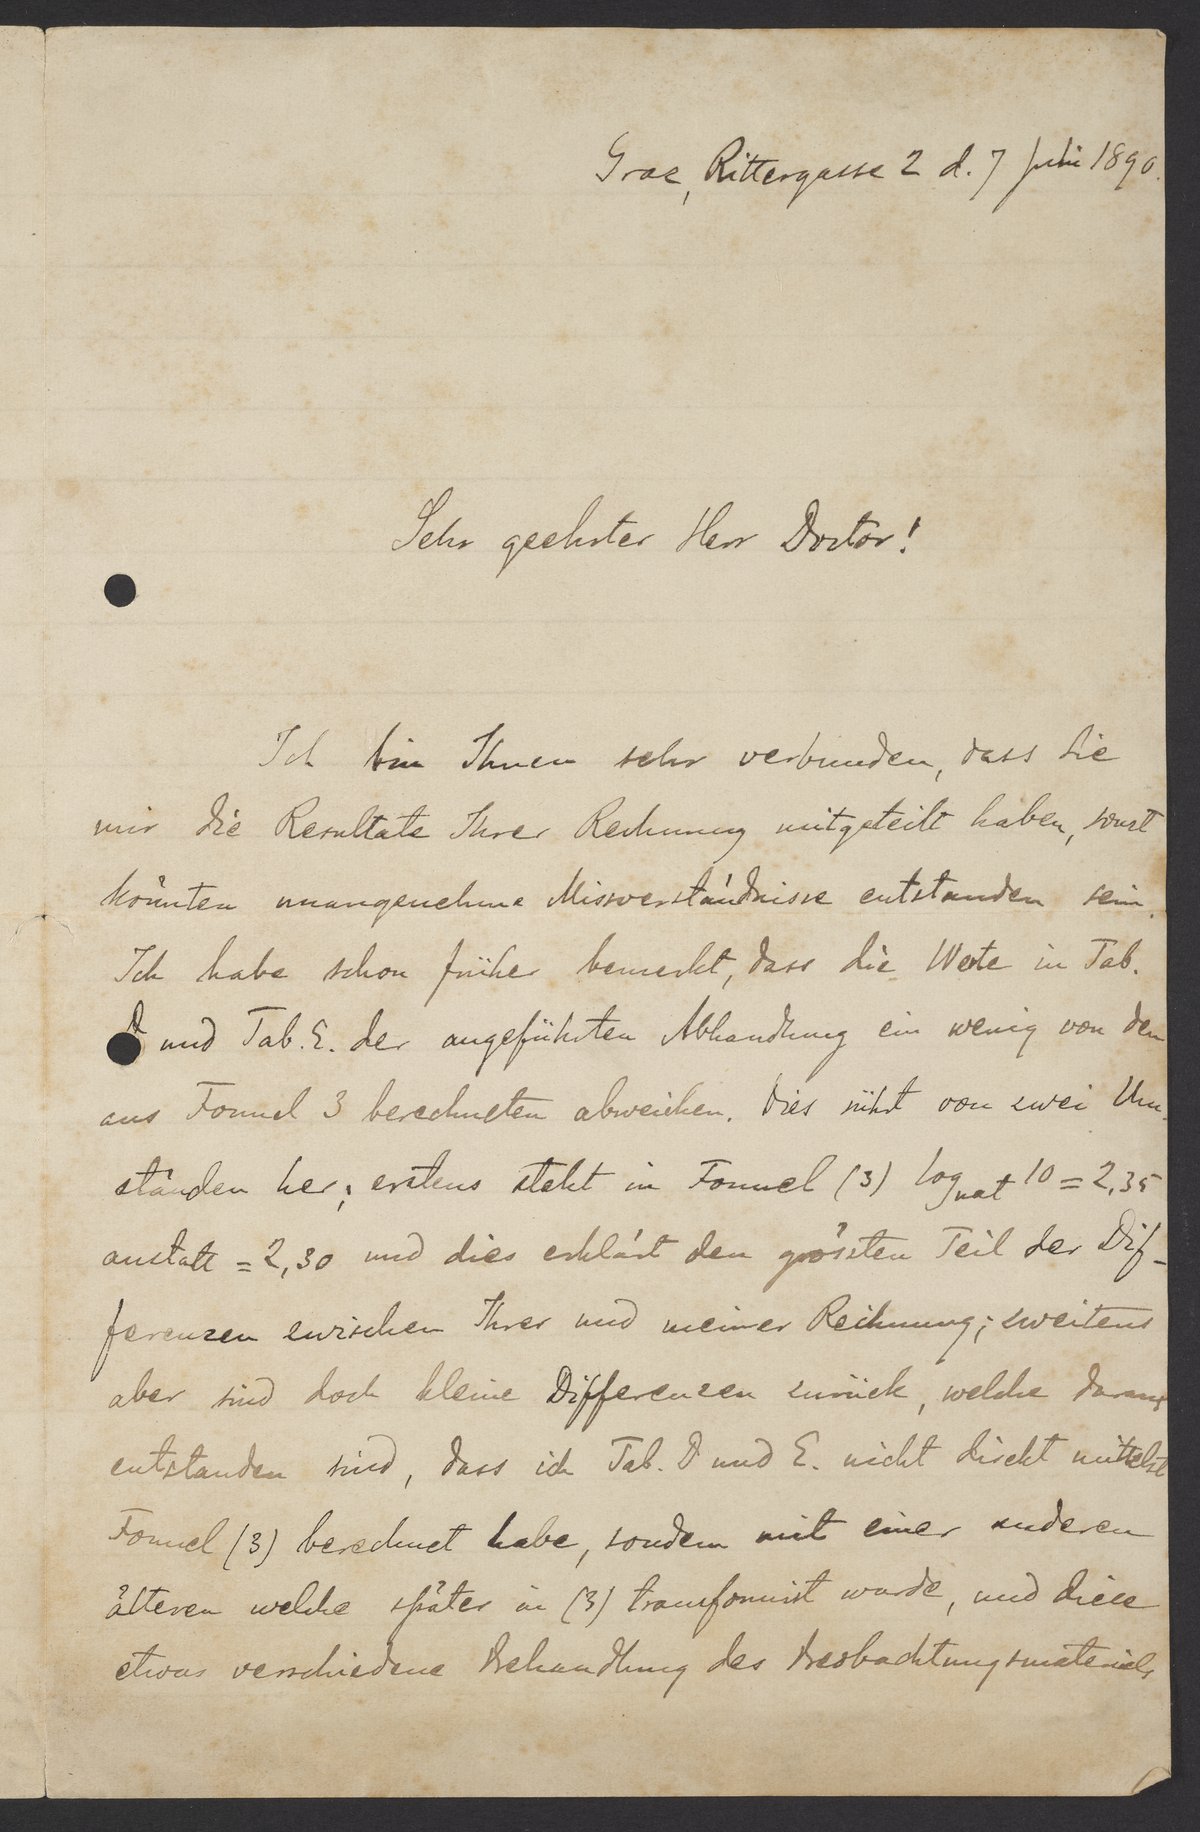 Graz, Rittergasse 2 d. 7 Juli 1890.
Sehr geehrter Herr Doctor!
Ich bin Ihnen sehr verbunden, dass Sie
mir die Resultate Ihrer Rechnung mitgeteilt haben, sonst
könnten unangenehme Missverständnisse entstanden sein.
Ich habe schon früher bemerkt, dass die Werte in Tab.
D und Tab. E. der angeführten Abhandlung ein wenig von den
aus Formel 3 berechneten abweichen. Dies rührt von zwei Um-
ständen her; erstens steht in Formel (3) log nat 10 = 2,35
anstatt = 2,30 und dies erklärt den grössten Teil der Dif-
ferenzen zwischen Ihrer und meiner Rechnung; zweitens
aber sind doch kleine Differenzen zurück, welche daraus
entstanden sind, dass ich Tab. D und E. nicht direkt mittelst
Formel (3) berechnet habe, sondern mit einer anderen
älteren welche später in (3) transformirt wurde, und diese
etwas verschiedene Behandlung des Beobachtungsmaterials